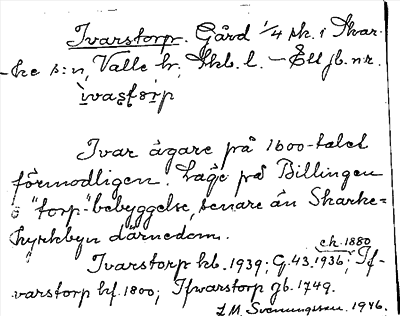 Ivarstorp. Gård 1/4 sk. i Skar-
-ke s:n, Valle hr, Skb. l. – Ett jb. nr.
ivastorp
Ivar ägare på 1600-talet
förmodligen. Läge på Billingen
o "torp"-bebyggelse, senare än Skarke=
kyrkbyn därnedom.
ek. 1880
Ivarstorp kb. 1939; G.43.1936; If-
varstorp hf. 1800; Ifwarstorp gb. 1749.
J.M. Svenungsson. 1946.